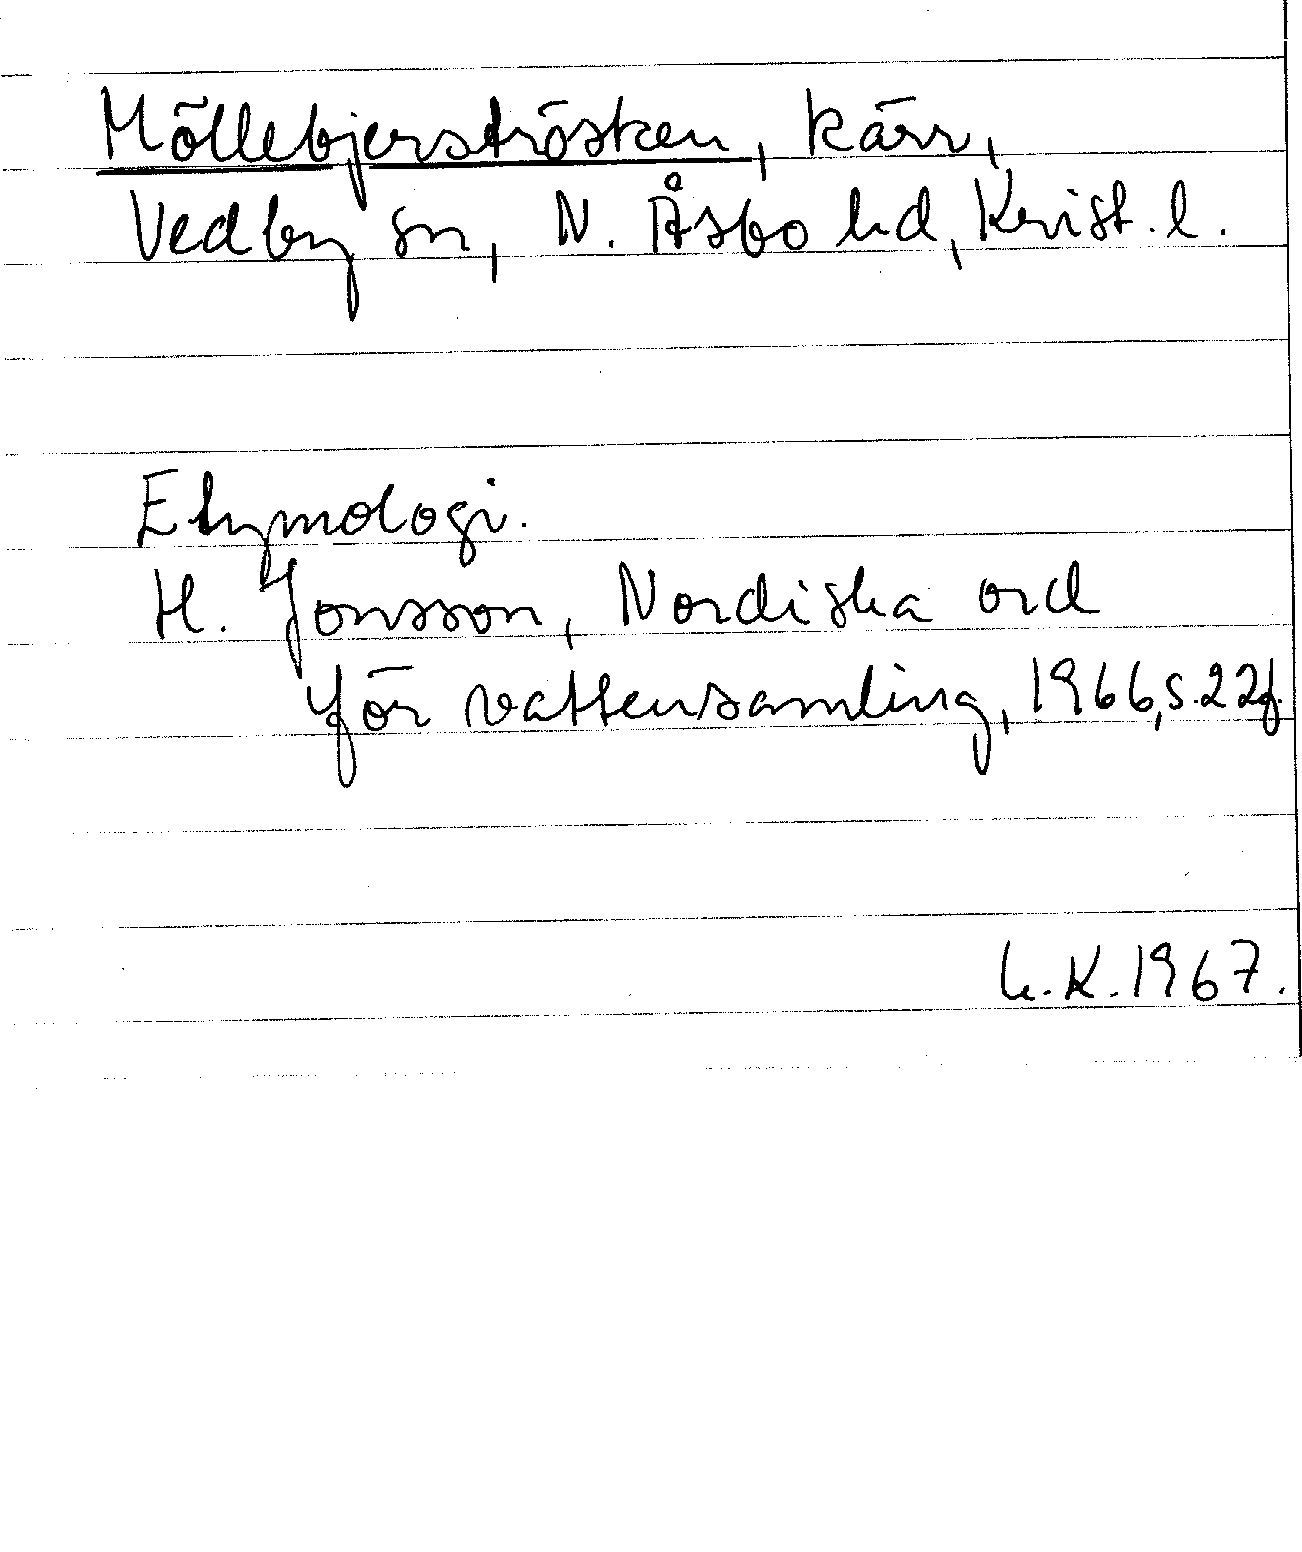 Möllebjerströsken, kärr,
Vedby sn, N. Åsbo hd, Krist. l.
Etymologi.
H. Jonsson, Nordiska ord
för vattensamling, 1966, s. 22f.
L.K. 1967.